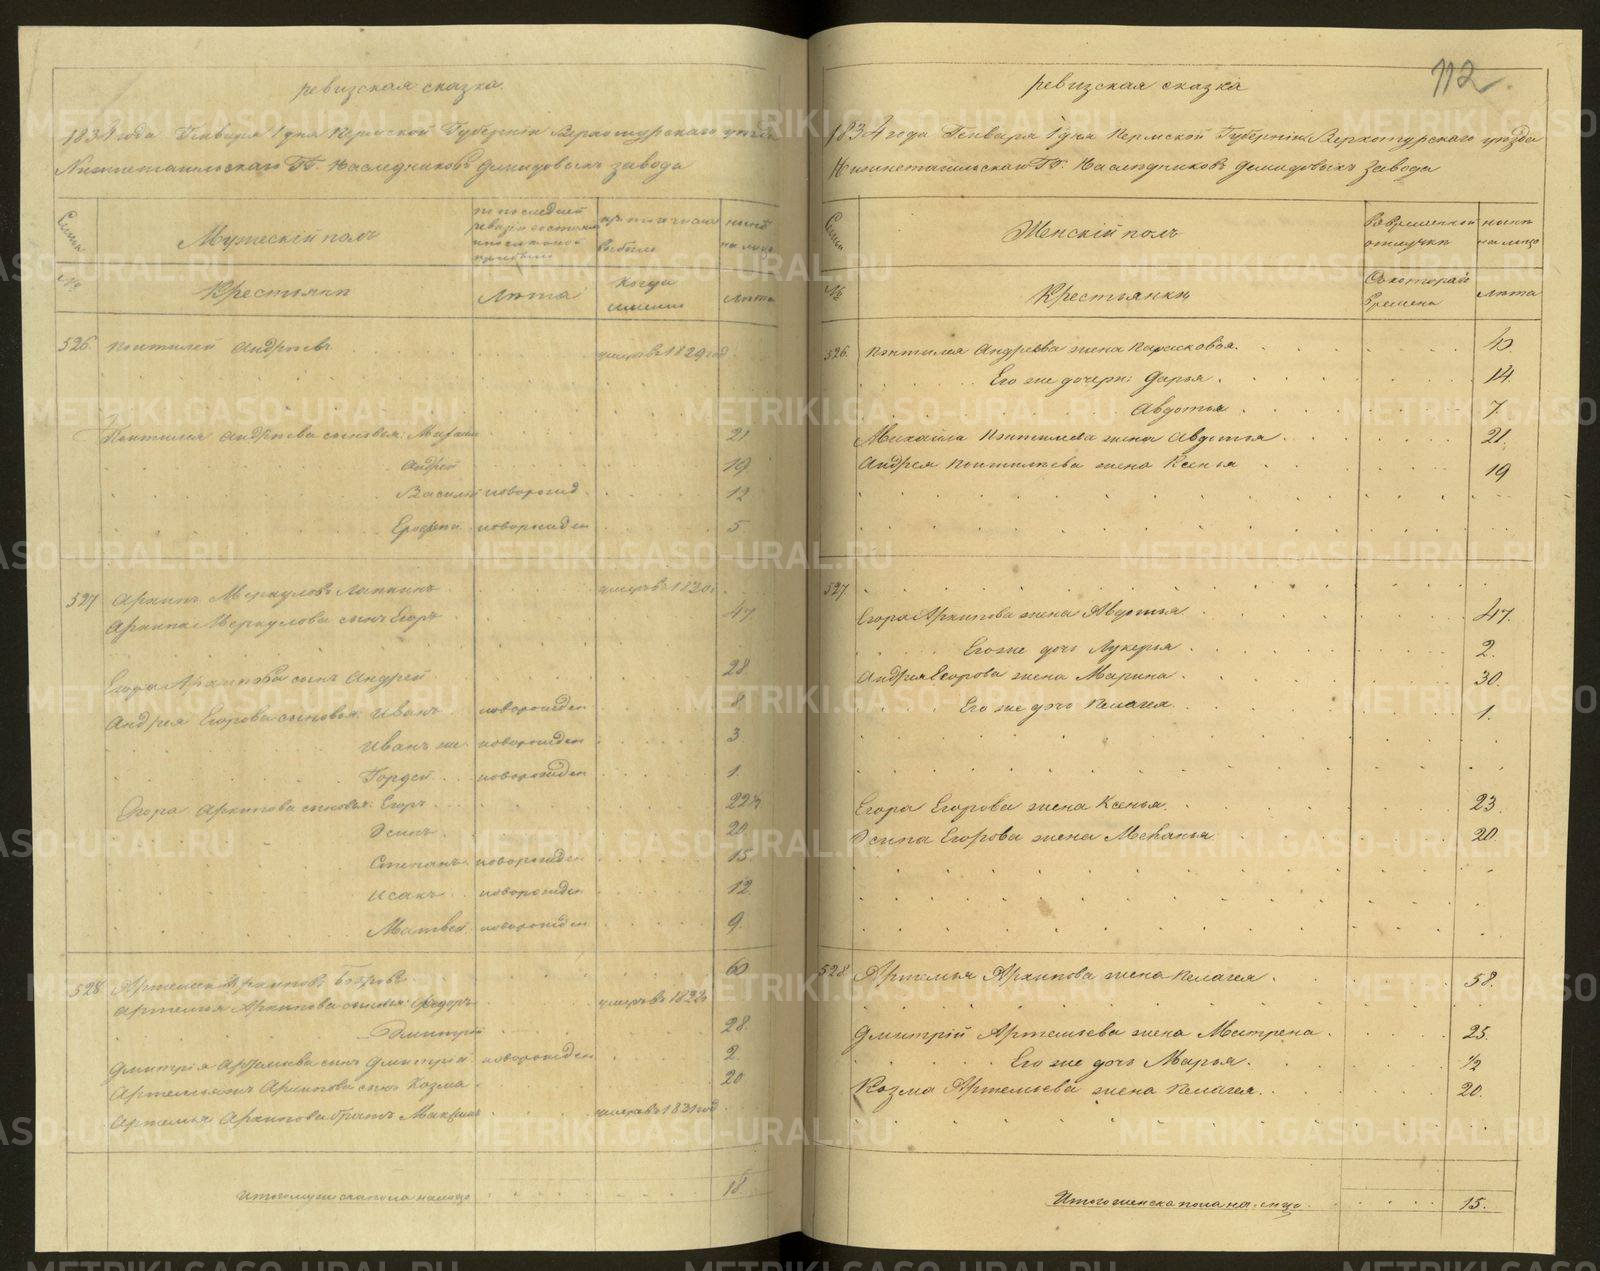 ревизская сказка.
1834 года Генваря 1 дня Пермской Губернии Верхотурскаго уезда
Нижнетагильскаго ГГ. Наследниковъ Демидовыхъ завода
Мужескiй полъ
по последней ревизiи состояло
выбыло
ныне на лицо
№
Крестьяне
Лета
Когда именно
Лета
526. Понтилей Андреевъ умеръ въ 1829 год.
Понтилея Андреева сыновья: Михаил 21
Андрей 19
Василiй новорожд. 12
Ерофей новорожден 5
527 Архипъ Меркуловъ Лапкинъ умеръ въ 1820
Архипа Меркулова сынъ Егоръ 47.
Егора Архипова сынъ Андрей 28
Андрея Егорова сыновья: Иванъ новорожден 8
Иванъ же новорожден 3
Гордей новорожден 1.
Егора Архипова сыновья: Егоръ 22½
Осипъ 20
Степанъ новорожден 15
Исакъ новорожден 12
Матвей новорожден 9.
528 Артемей Архиповъ Бобровъ 60
Артемья Архипова сынъ Федоръ умеръ въ 1822
Дмитрiй 28
Дмитрiя Артемьева сынъ Дмитрiй новорожден 2
Архипова сынъ Козма 20
Артемья Архипова братъ Максимъ умеръ въ 1831 год
Итого мужеска пола налицо 18
112
ревизская сказка
1834 года Генваря 1 дня Пермской Губернiи Верхотурскаго уезда
Нижнетагильскаго ГГ. Наследниковъ Демидовыхъ завода
Женскiй полъ
Во временной отлучке
ныне на лицо
№
Крестьянки
Съ котораго времени
Лета
526. Понтилея Андреева жена Парасковья. 40.
Его же дочери: Дарья. 14.
Авдотья 7.
Михайла Понтилеева жена Авдотья 21.
Андрея Понтилеева жена Ксенья 19
527.
Егора Архипова жена Авдотья 47.
Его же дочь Лукерья 2.
Андрея Егорова жена Марина. 30.
Его же дочь Пелагея. 1.
Егора Егорова жена Ксенья. 23.
Осипа Егорова жена Меланья 20.
528 Артемья Архипова жена Пелагея. 58.
Дмитрiй Артемьева жена Матрена. 25.
Его же дочь Марья. ½
Козма Артемьева жена Пелагея. 20.
Итого женска пола на лицо. 15.
METRIKI.GASO-URAL.RU